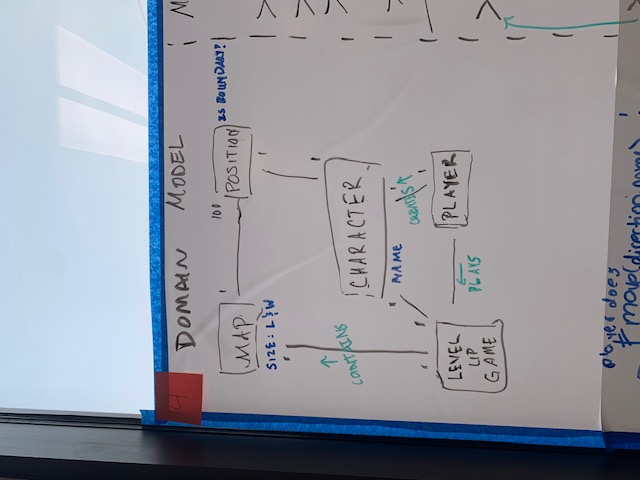 4
DOMAIN MODEL
M
1
100
MAP
POSITION
IS BOUNDARY?
SIZE: L & W
CONTAINS
CHARACTER
NAME
CREATES
LEVEL
UP
GAME
PLAYER
PLAYS
player does
move(direction,name)